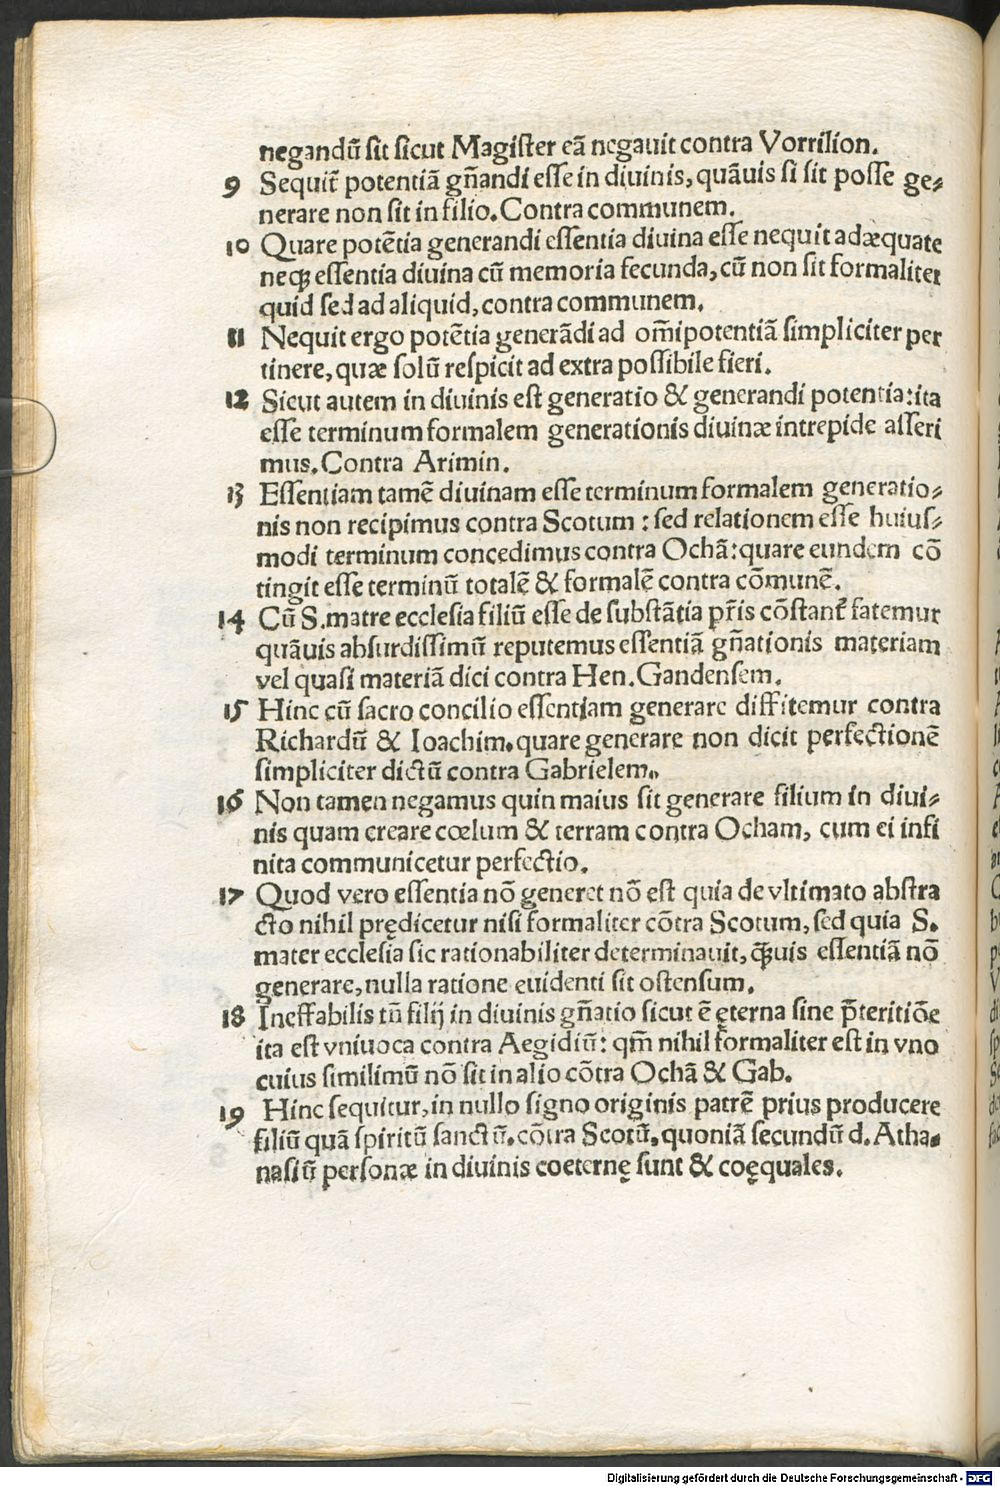 negandū sit sicut Magister eā negauit contra Vorrilion.
9 Sequit̃ potentiā gñandi esse in diuinis, quāuis si sit posse ge⸗
nerare non sit in filio. Contra communem.
10 Quare potētia generandi essentia diuina esse nequit adæquate
neqꝫ essentia diuina cū memoria fecunda, cū non sit formaliter
quid sed ad aliquid, contra communem.
11 Nequit ergo potētia generādi ad om̄ipotentiā simpliciter per
tinere, quæ solū respicit ad extra possibile fieri.
12 Sicut autem in diuinis est generatio & generandi potentia: ita
esse terminum formalem generationis diuinæ intrepide asseri
mus. Contra Arimin.
13 Essentiam tamē diuinam esse terminum formalem generatio⸗
nis non recipimus contra Scotum : sed relationem esse huius⸗
modi terminum concedimus contra Ochā: quare eundem cō
tingit esse terminū totalē & formalē contra cōmunē.
14 Cū S. matre ecclesia filiū esse de substātia pr̄is cōstant̃ fatemur
quāuis absurdissimū reputemus essentiā gñationis materiam
vel quasi materiā dici contra Hen. Gandensem.
15 Hinc cū sacro concilio essentiam generare diffitemur contra
Richardū & Ioachim. quare generare non dicit perfectionē
simpliciter dictū contra Gabrielem.
16 Non tamen negamus quin maius sit generare filium in diui⸗
nis quam creare cœlum & terram contra Ocham, cum ei infi
nita communicetur perfectio.
17 Quod vero essentia nō generet nō est quia de vltimato abstra
cto nihil prędicetur nisi formaliter cōtra Scotum, sed quia S.
mater ecclesia sic rationabiliter determinauit, ꝙ̄uis essentiā nō
generare, nulla ratione euidenti sit ostensum.
18 Ineffabilis tñ filij in diuinis gñatio sicut ē ęterna sine p̄teritiōe
ita est vniuoca contra Aegidiū: qm̄ nihil formaliter est in vno
cuius similimū nō sit in alio cōtra Ochā & Gab.
19 Hinc sequitur, in nullo signo originis patrē prius producere
filiū quā spiritū sanctū. cōtra Scotū, quoniā secundū d. Atha⸗
nasiū personæ in diuinis coeternę sunt & coęquales.
Digitalisierung gefördert durch die Deutsche Forschungsgemeinschaft - DFG